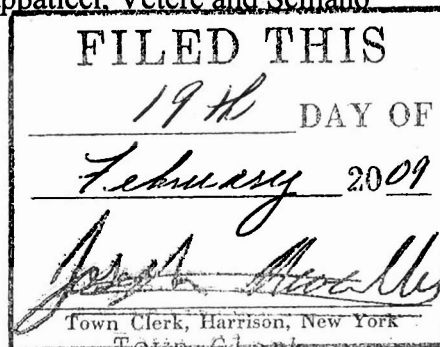 Vetere and
FILED THIS
19th DAY OF
February 2009
Joseph
Town Clerk, Harrison, New York
Town Clerk